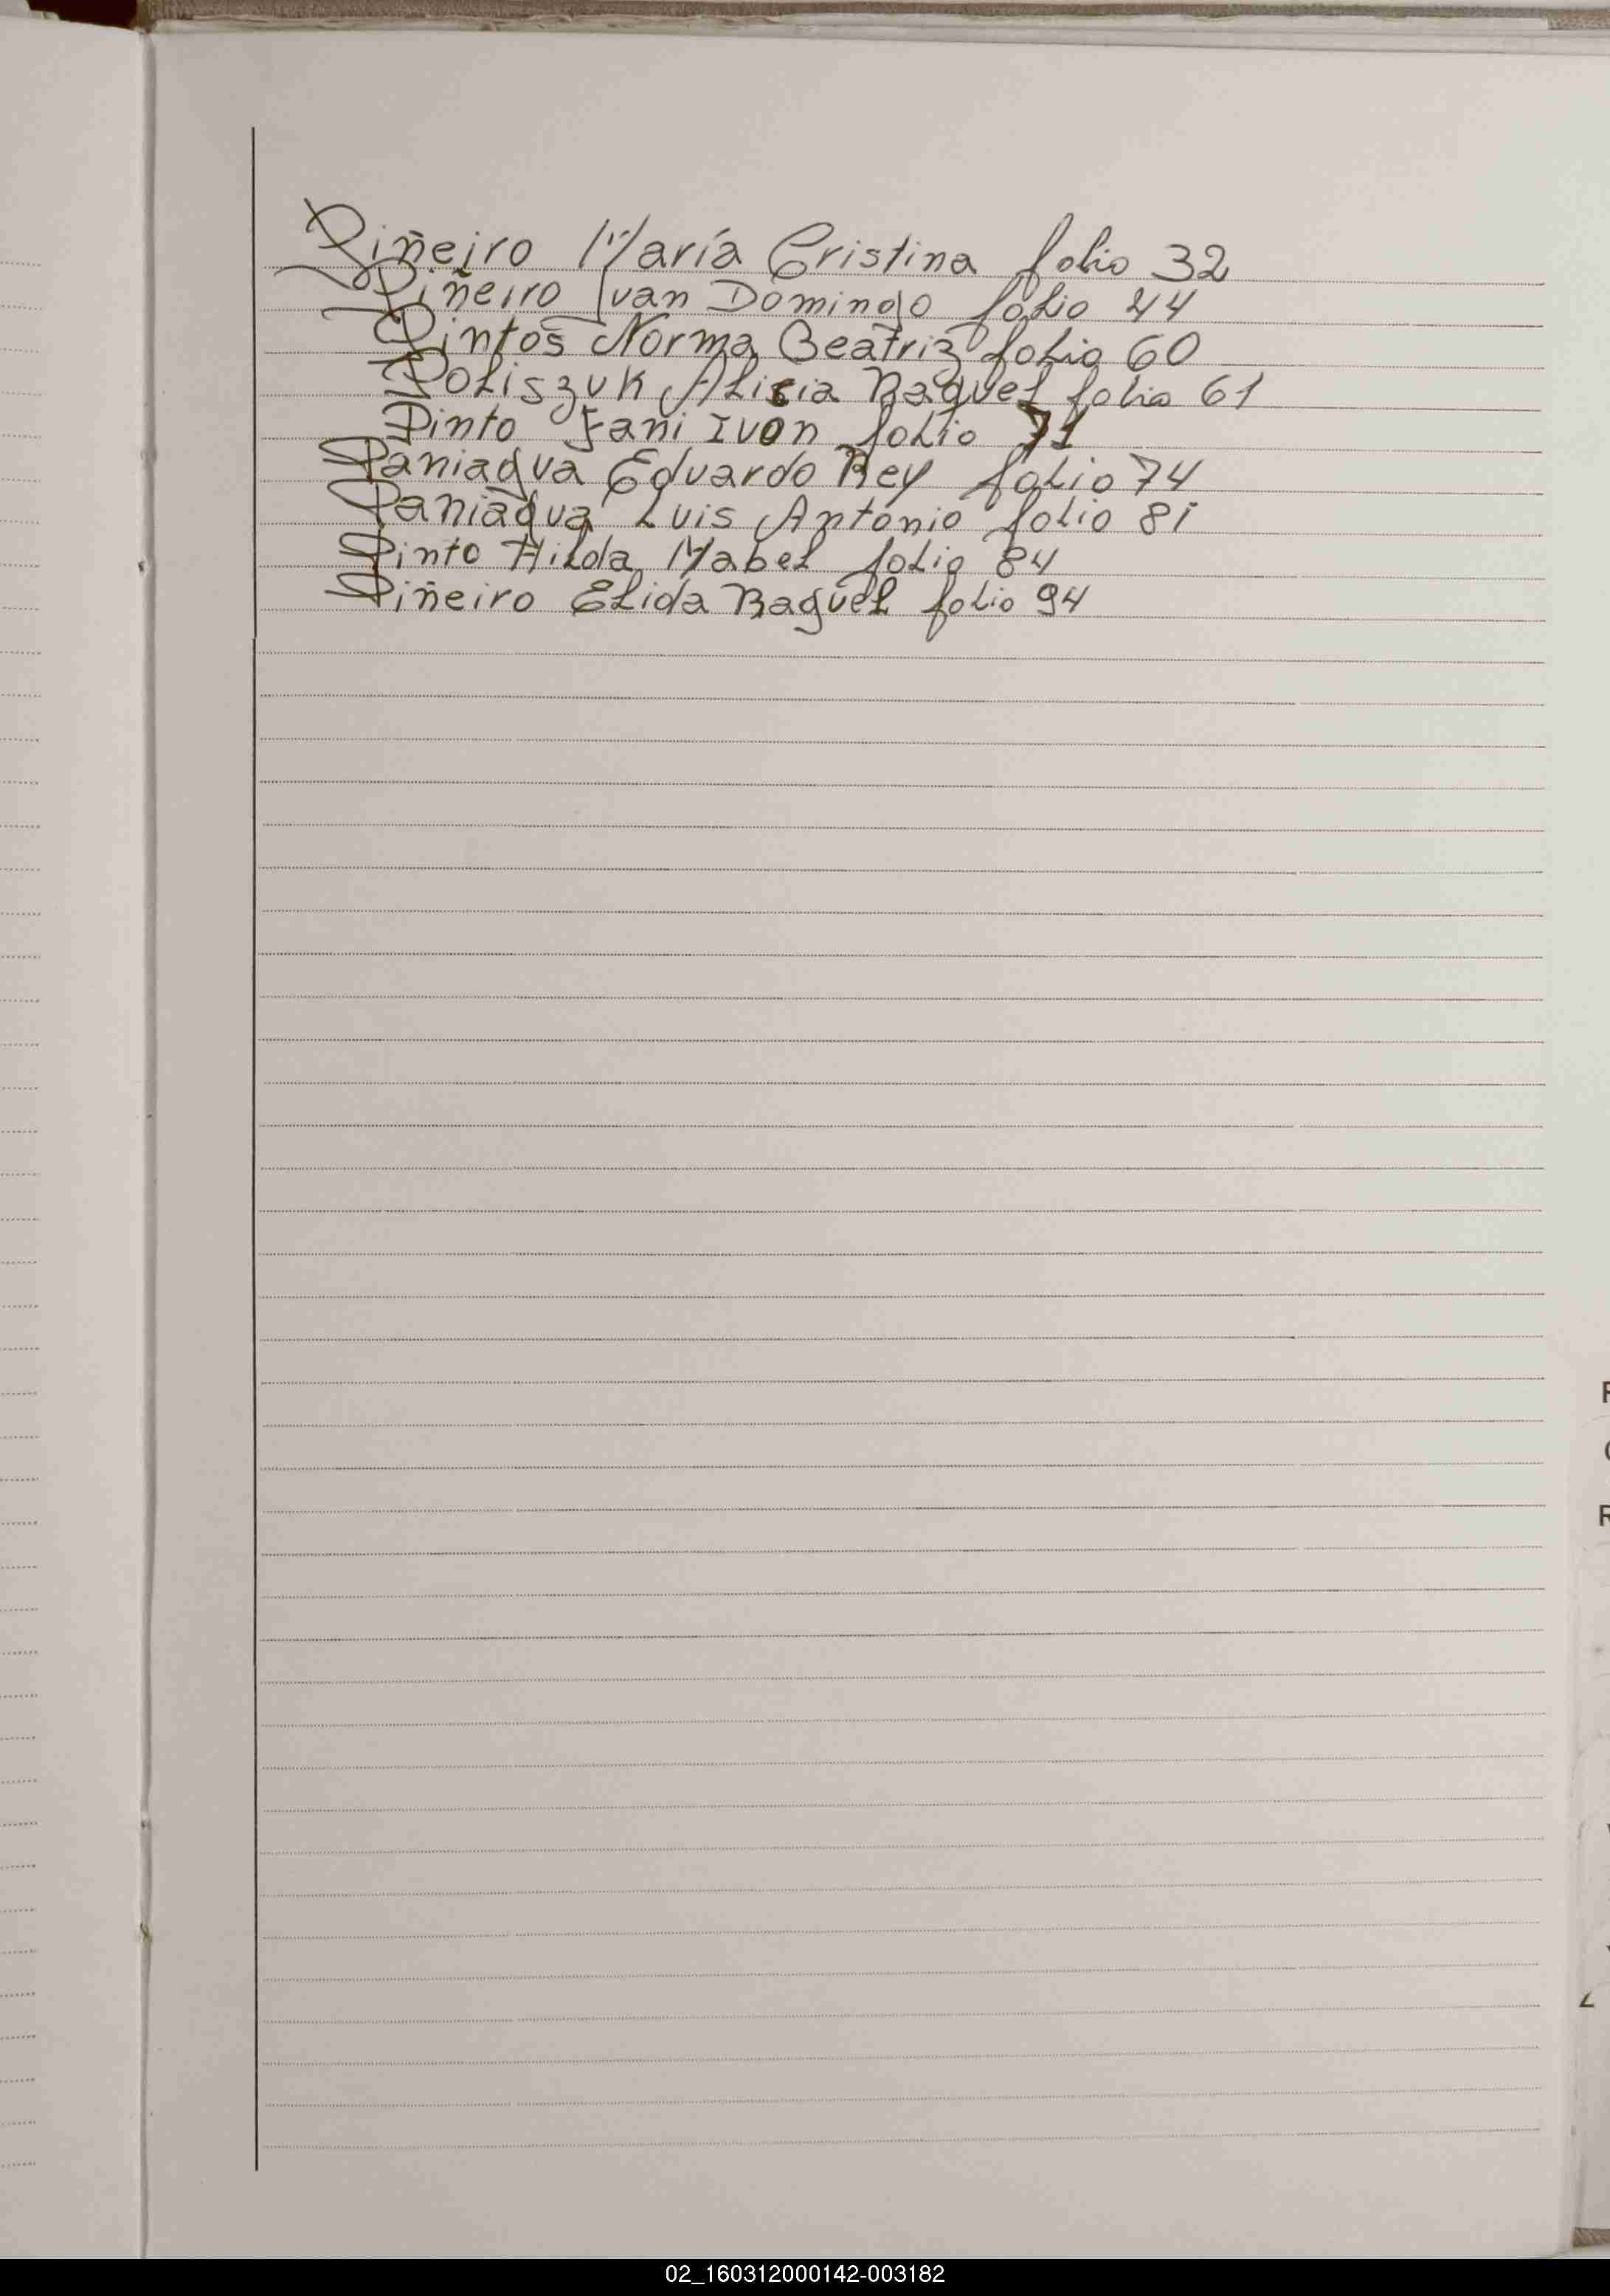 Piñeiro María Cristina folio 32
Piñeiro Ivan Domingo folio 44
Pintos Norma Beatriz folio 60
Poliszuk Alicia Raquel folio 61
Pinto Fani Ivon folio 71
Paniagua Eduardo Rey folio 74
Paniagua Luis Antonio folio 81
Pinto Hilda Mabel folio 84
Piñeiro Elida Raquel folio 94
02_160312000142-003182